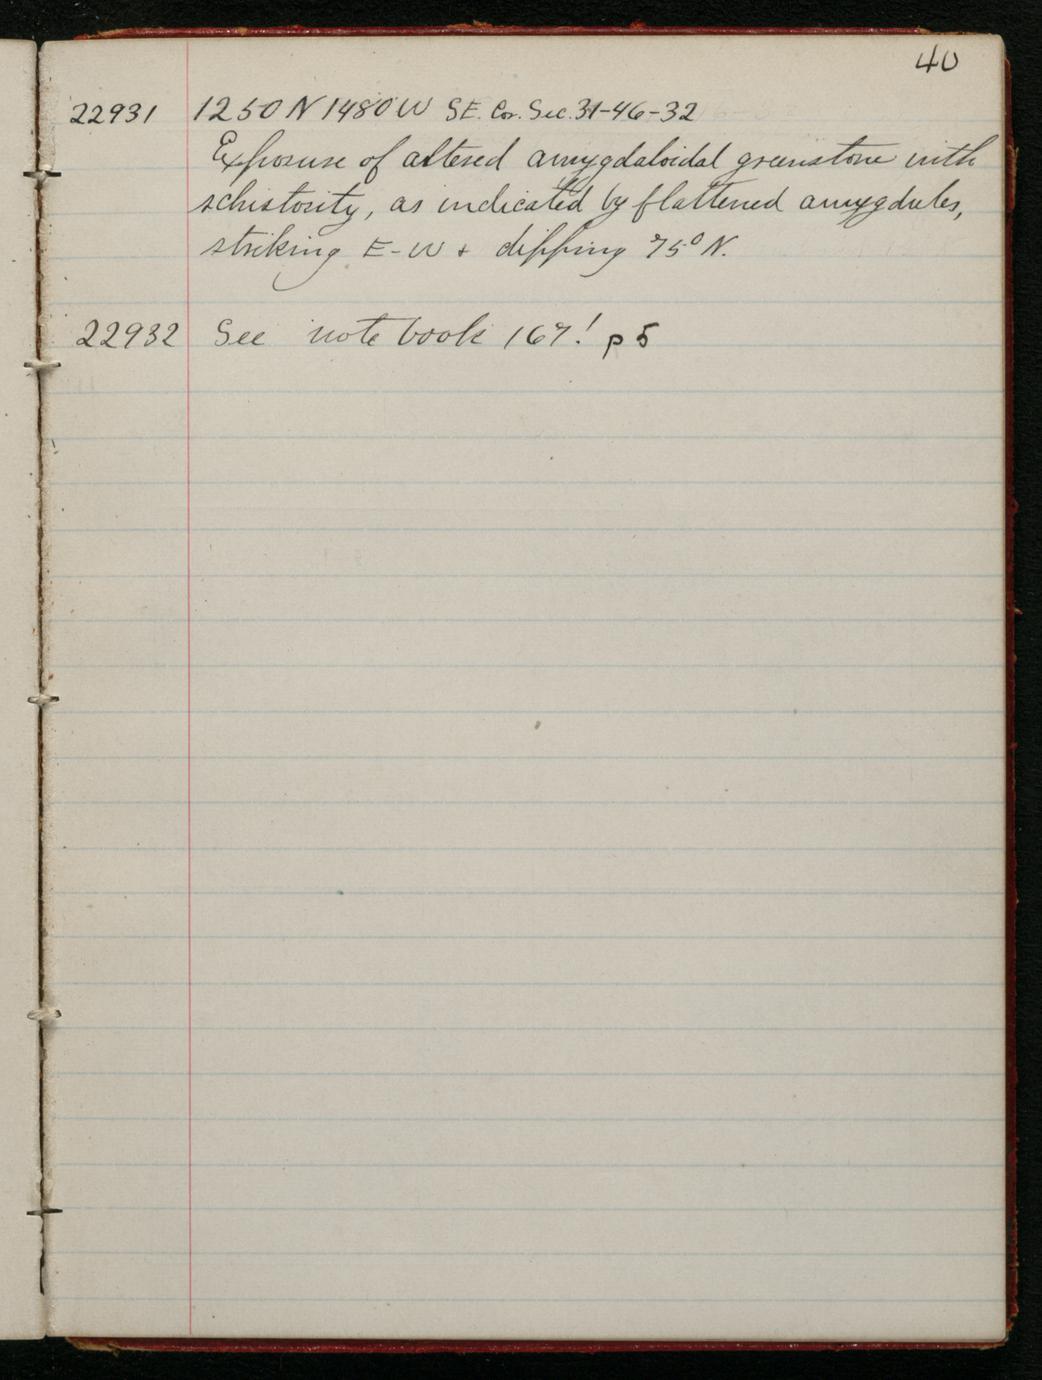 40
22931 1250 N 1480 W SE. Cor. Sec. 31-46-32
Exposure of altered amygdaloidal greenstone with
schistosity, as indicated by flattened amygdules,
striking E-W + dipping 75° N.
22932 See note book 167! p 5